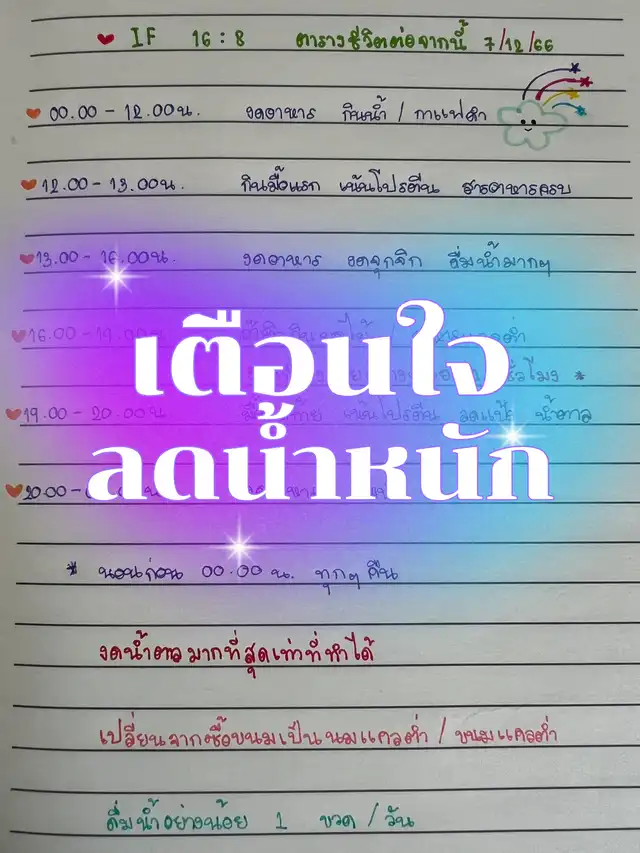 IF 16:8 ตารางชีวิตต่อจากนี้ 7/12/66
00.00 - 12.00 น. งดอาหาร กินน้ำ / กาแฟดำ
12.00 - 13.00 น. กินมื้อแรก เน้นโปรตีน สารอาหารครบ
13.00 - 16.00 น. งดอาหาร งดจุกจิก ดื่มน้ำมากๆ
16.00 - 19.00
เตือนใจ
ชั่วโมง *
19.00 - 20.00 น. เน้นโปรตีน ลดแป้ง น้ำตาล
ลดน้ำหนัก
20.00 -
* นอนก่อน 00.00 น. ทุกๆ คืน
งดน้ำตาลมากที่สุดเท่าที่ทำได้
เปลี่ยนจากซื้อขนมเป็นนมแคลต่ำ / ขนมแคลต่ำ
ดื่มน้ำอย่างน้อย 1 ขวด / วัน